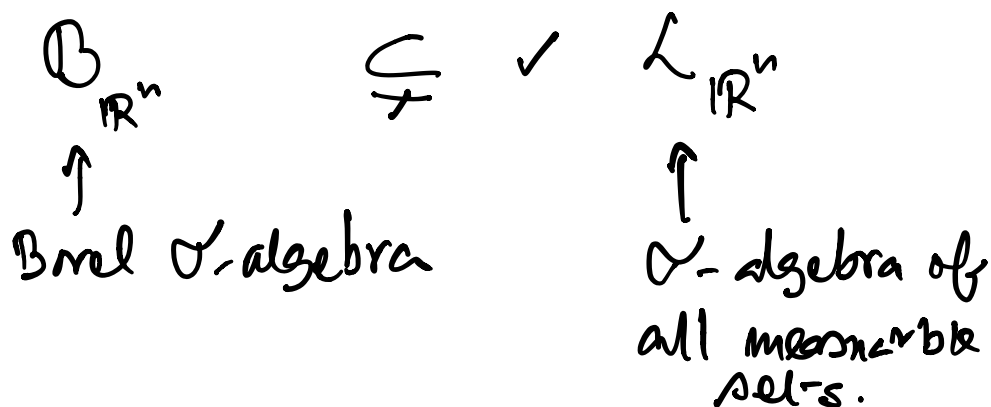 𝓑_ℝⁿ ⊊ ✓ 𝓛_ℝⁿ
↑ ↑
Borel σ-algebra σ-algebra of
all measurable
sets.